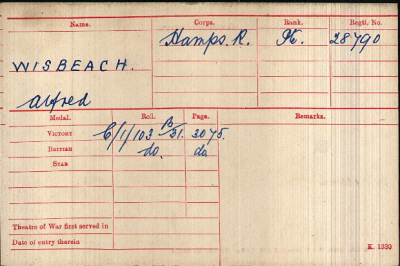 Name. Corps. Rank. Regtl. No.
WISBEACH. Hamps. R. Pte. 28790
Alfred
Medal. Roll. Page. Remarks.
VICTORY C/1/103 B31. 3075.
BRITISH do. do
STAR
Theatre of War first served in
Date of entry therein
K. 1380